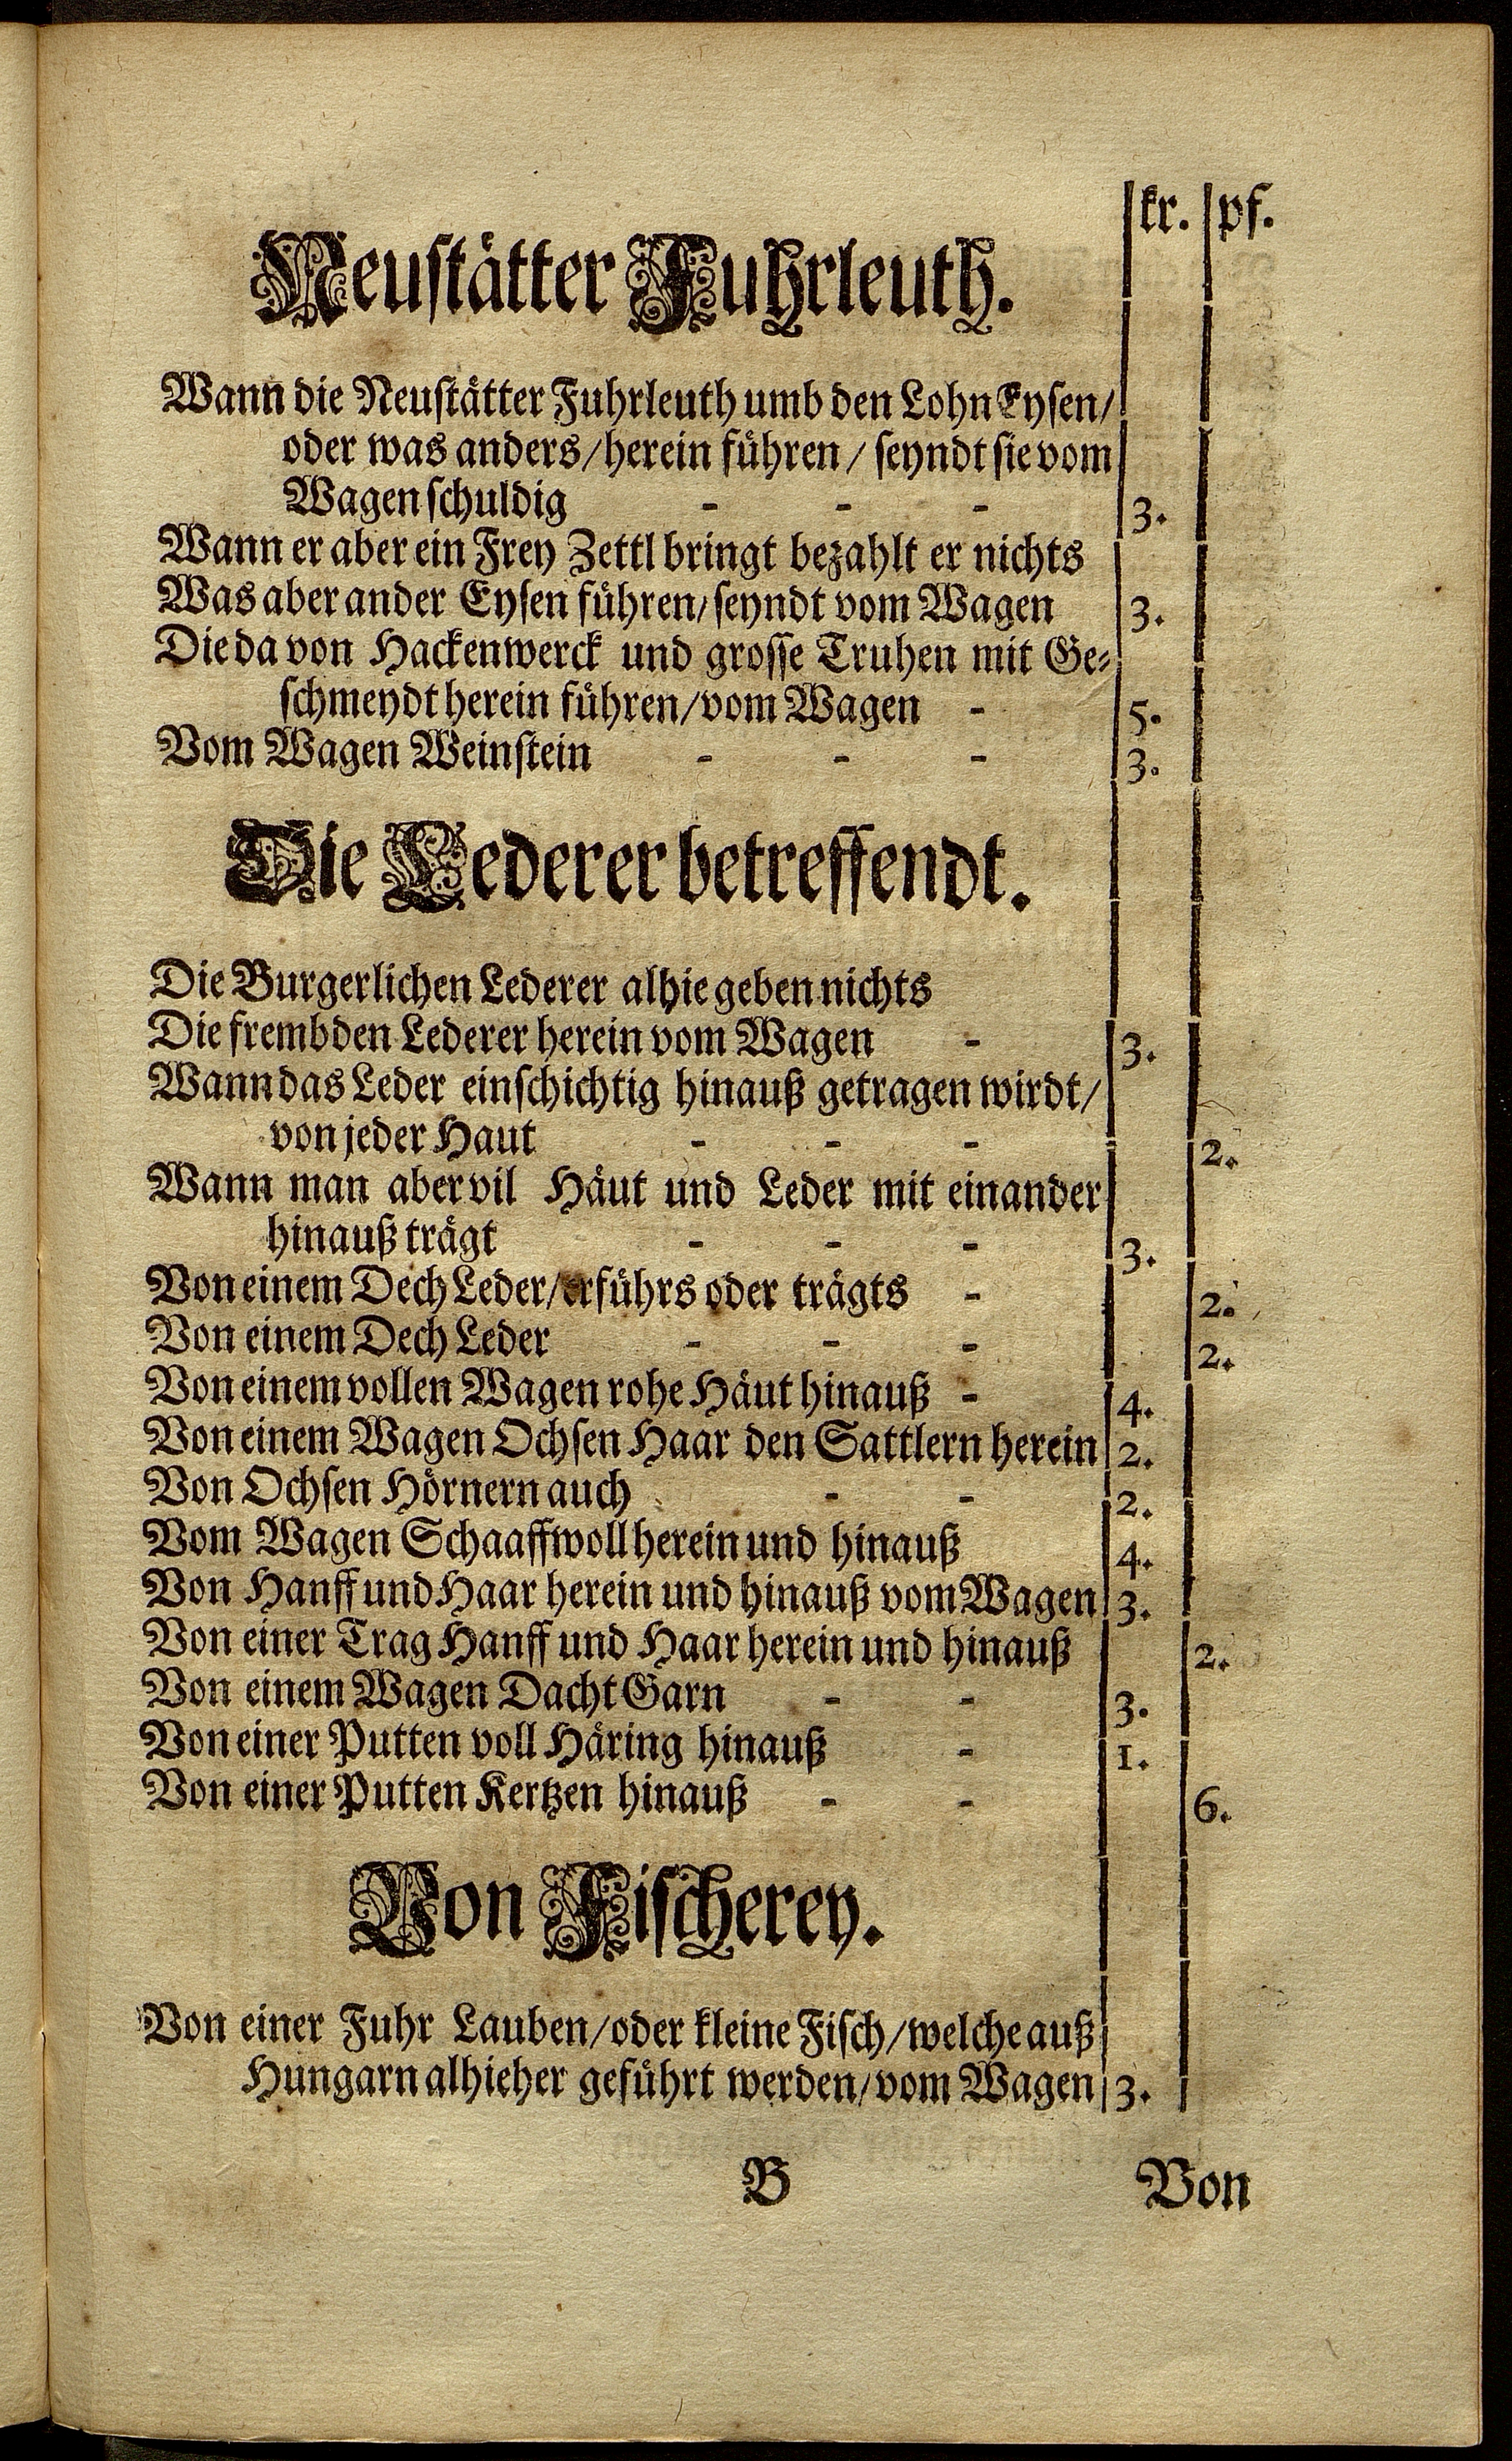 kr. pf.
Neustätter Fuhrleuth.
Wann die Neustätter Fuhrleuth umb den Lohn Eysen/
oder was anders/herein führen/ seyndt sie vom
Wagen schuldig - - - 3.
Wann er aber ein Frey Zettl bringt bezahlt er nichts
Was aber ander Eysen führen/seyndt vom Wagen 3.
Die da von Hackenwerck und grosse Truhen mit Ge-
schmeydt herein führen/vom Wagen - 5.
Vom Wagen Weinstein - - - 3.
Die Lederer betreffendt.
Die Burgerlichen Lederer alhie geben nichts
Die frembden Lederer herein vom Wagen - 3.
Wann das Leder einschichtig hinauß getragen wirdt/
von jeder Haut - - - 2.
Wann man aber vil Häut und Leder mit einander
hinauß trägt - - - 3.
Von einem Dech Leder/erführs oder trägts - 2.
Von einem Dech Leder - - - 2.
Von einem vollen Wagen rohe Häut hinauß - 4.
Von einem Wagen Ochsen Haar den Sattlern herein 2.
Von Ochsen Hörnern auch - - 2.
Vom Wagen Schaaffwoll herein und hinauß 4.
Von Hanff und Haar herein und hinauß vom Wagen 3.
Von einer Trag Hanff und Haar herein und hinauß 2.
Von einem Wagen Dacht Garn - - 3.
Von einer Putten voll Häring hinauß - 1.
Von einer Putten Kertzen hinauß - - 6.
Von Fischerey.
Von einer Fuhr Lauben/oder kleine Fisch/welche auß
Hungarn alhieher geführt werden/vom Wagen 3.
B Von